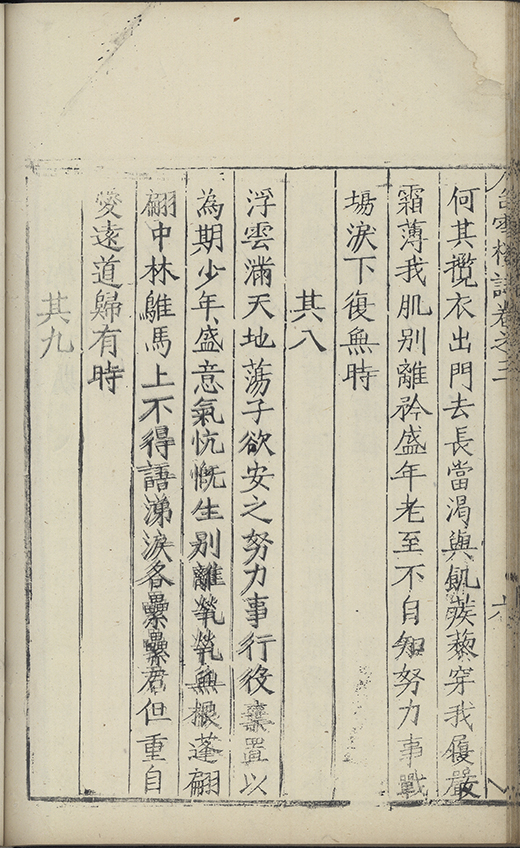 詩卷之二
何其攬衣出門去長當渴與飢蒺藜穿我履嚴
霜薄我肌别離矜盛年老至不自知努力事戰
場淚下復無時
其八
浮雲滿天地蕩子欲安之努力事行役棄置以
為期少年盛意氣忼慨生别離煢煢無根蓬翩
翩中林鵻馬上不得語涕淚各纍纍君但重自
愛遠道歸有時
其九